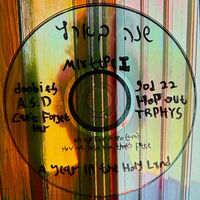 שנה בארץ
MIXtApe I
doobies
A.S.D
Can't Forget
Her
god 22
Hop out
TRPHYS
A year in the Holy Land